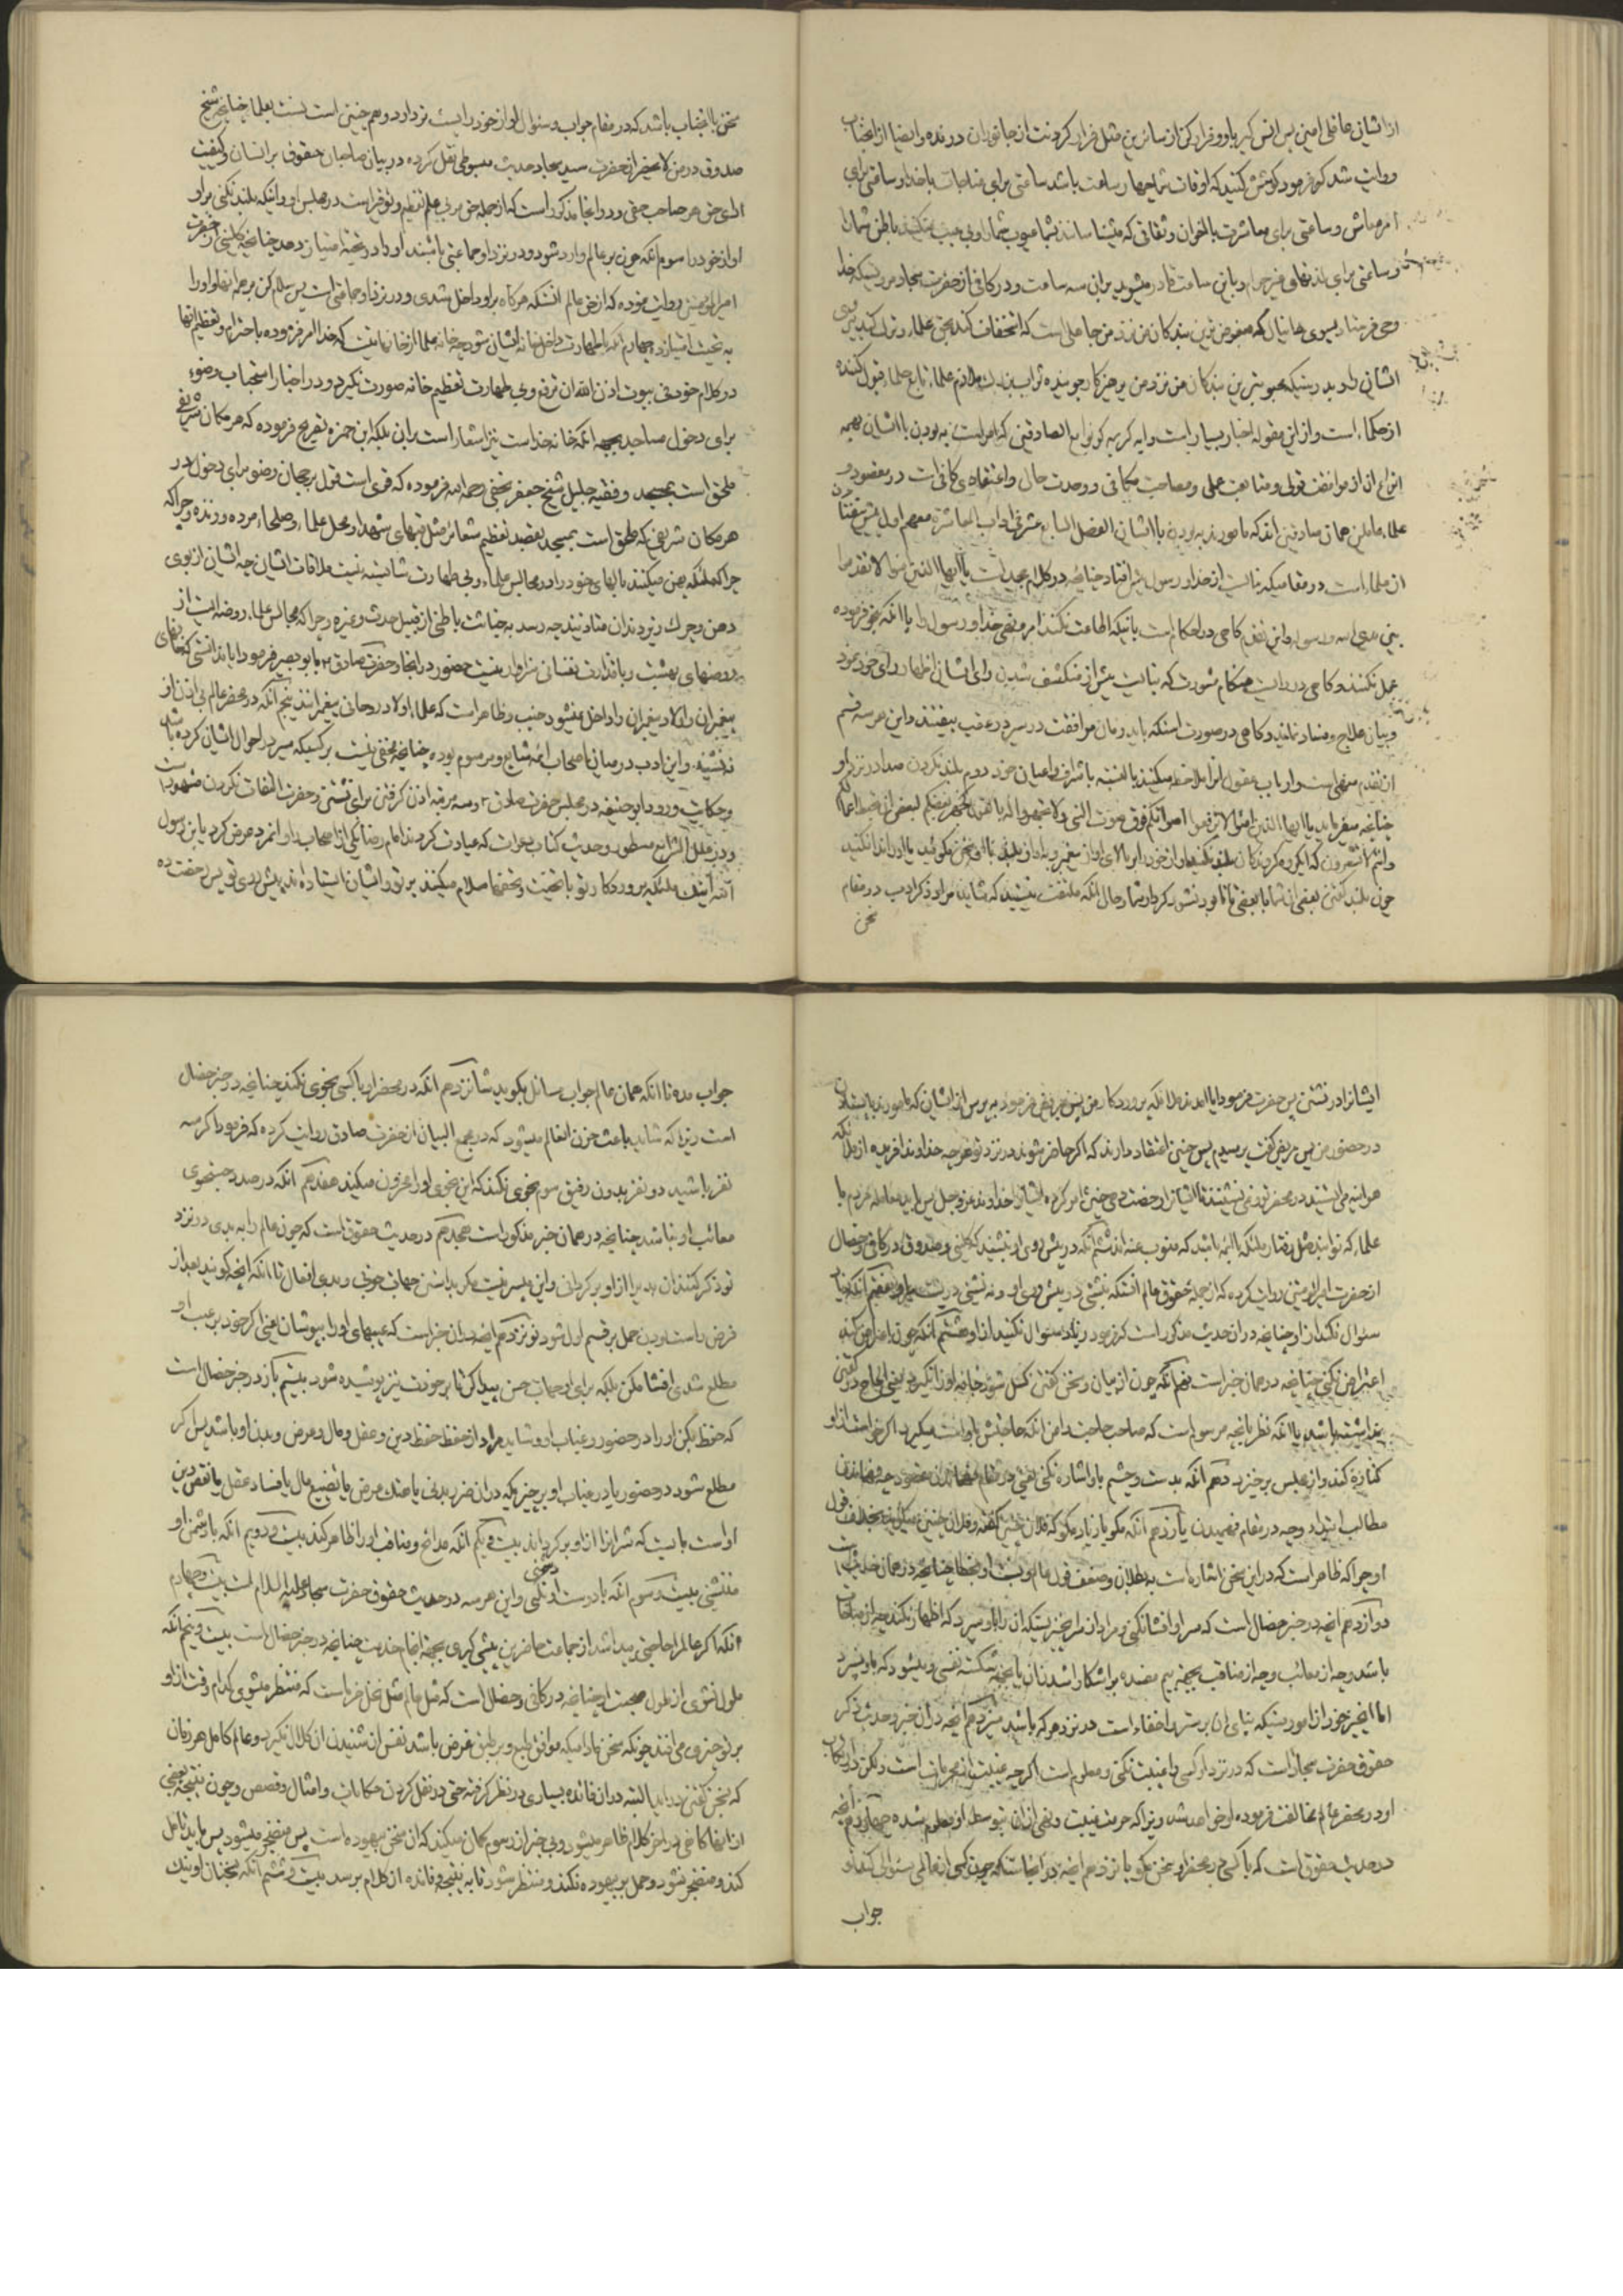 از ایشان عاقلی امین پس انس کیر باو و فرار کن از سائرین مثل فرار کردنت از جانوران درنده و ایضا از انجناب
روایت شد که فرمود کوشش کنید که اوقات شما چهار ساعت باشد ساعتی برای مناجات با خدا و ساعتی برای
امر معاش و ساعتی برای معاشرت با اخوان و ثقاتی که میشناسانند بشما عیوب شما را و بی عیب میکنند باطن شما را
و ساعتی برای لذتهای غیر حرام و باین ساعت قادر میشوید بر ان سه ساعت و در کافی از حضرت سجاد مرویست که خدا
وحی فرستاد بسوی دانیال که مبغوض ترین بندکان من نزد من جاهلی است که استخفاف کند بحق علماء و ترک کند پیروی
ایشان را و بدرستیکه محبوبترین بندکان من نزد من پرهیزکار جوینده ثواب ملازم علماء تابع حلماء قبول کننده
از حکماء است و از این مقوله اخبار بسیار است و ایه کریمه کونوا مع الصادقین که امر است به بودن با ایشان بهمه
انواع ان از موافقت قولی و متابعت عملی و مصاحبت مکانی و وحدت حال و اعتقادی کافی است در مقصود و
علماء عاملین همان صادقین اند که ماموریم به بودن با ایشان الفصل السابع عشر فی اداب المعاشرة معهم اول پیش نیفتادن
از علماء است در مقامیکه نیابت از خدا و رسول بایشان افتاد چنانچه در کلام مجید است یا ایها الذین امنوا لا تقدموا
بین یدی الله و رسوله و این تقدم کاهی در احکام است باینکه اطاعت نکنند امر و نهی خدا و رسول را یا انکه بنحو فرموده
عمل نکنند و کاهی در رایست هنکام مشورت که نبایست پیش از منکشف شدن رای ایشان اظهار رای خود نمود
و بیان علاج و فساد نمایند و کاهی در صورت است که باید زمان موافقت در سیر در عقب بیفتند و این هر سه قسم
از تقدم منهی است و ارباب عقول انرا ملاحظه میکنند بالنسبه باشراف و اعیان خود دوم بلند نکردن صدا در نزد او
چنانچه میفرماید یا ایها الذین امنوا لا ترفعوا اصواتکم فوق صوت النبی و لا تجهروا له بالقول کجهر بعضکم لبعض ان تحبط اعمالکم
و انتم لا تشعرون که ایکروه کروندکان بلند نکنید اواز خود را بر بالای اواز پیغمبر و باواز بلند با او سخن مکوئید یا او را ندا نکنید
چون بلند کفتن بعضی از شما با بعضی تا نابود نشود کردار شما و حال انکه ملتفت نیستید که شاید مراد ذکر ادب در مقام
سخن
سخن با انجناب باشد که در مقام جواب و سئوال اواز خود را پست تر دارد و هم چنین است نسبت بعلما چنانچه شیخ
صدوق در من لا یحضر از حضرت سید سجاد حدیث مبسوطی نقل کرده در بیان صاحبان حقوق بر انسان و کیفیت
ادای حق هر صاحب حقی و در انجا مذکور است که از جمله حق مربی علم تعظیم و توقیر است در مجلس او و اینکه بلند نکنی بر او
اواز خود را سوم انکه چون بر عالم وارد شود و در نزد او جماعتی باشند او را در تحیت امتیاز دهد چنانچه کلینی از حضرت
امیرالمؤمنین روایت نموده که از حق عالم انستکه هرکاه بر او داخل شدی و در نزد او جماعتی است پس سلام کن بر همه انها و او را
به تحیت امتیاز ده چهارم انکه با طهارت داخل خانه ایشان شود چه خانه علما از خانهائیست که خدا امر فرموده باحترام و تعظیم انها
در کلام خود فی بیوت اذن الله ان ترفع و بی طهارت تعظیم خانه صورت نکیرد و در اخبار استحباب وضوء
برای دخول مساجد بجهة انکه خانه خداست نیز اشعار است بر ان بلکه ابن حمزه تصریح فرموده که هر مکان شریفی
ملحق است بمسجد و فقیه جلیل شیخ جعفر نجفی رحمه الله فرموده که قوی است قول برجحان وضو برای دخول در
هر مکان شریفی که ملحق است بمسجد بقصد تعظیم شعائر مثل قبهای شهدا و محل علماء و صلحاء مرده و زنده و چراکه
چراکه ملئکه پهن میکنند بالهای خود را در مجالس علماء و بی طهارت شایسته نیست ملاقات ایشان چه ایشان از بوی
دهن و چرک زیر دندان متاذیند چه رسد به خباثت باطنی از قبیل حدث و غیره و چراکه مجالس علماء روضه ایست از
روضهای بهشت و با قذارت نفسانی سزاوار نیست حضور در انجا و حضرت صادق ع بابو بصیر فرمود ایا ندانستی که خانهای
پیغمبران و اولاد پیغمبران را داخل نمیشود جنب و ظاهر است که علماء اولاد روحانی پیغمبرانند پنجم انکه در محضر عالم بی اذن او
ننشیند و این ادب در میان اصحاب ائمه شایع و مرسوم بوده چنانچه مخفی نیست بر کسیکه سیر در احوال ایشان کرده باشد
و حکایت ورود ابو حنیفه در مجلس حضرت صادق ع و سه مرتبه اذن کرفتن برای نشستن و حضرت التفات نکردن مشهور است
و در علل الشرایع مسطور و حدیث کتاب دعوات که عیادت کردند امام رضا یکی از اصحاب را و انمرد عرض کرد یابن رسول
الله اینک ملئکه پروردکار تو با تحیت و تحفها سلام میکنند بر تو و ایشان ایستاده اند پیش روی تو پس رخصت ده
ایشانرا در نشستن پس حضرت فرمود ایا امدند ملائکه پروردکار من پس بمریض فرمود بپرس از ایشان که مامورند بایستادن
در حضور من پس مریض کفت پرسیدم پس چنین اعتقاد دارند که اکر حاضر شوند در نزد تو هر چه خداوند افریده از ملائکه
هر اینه می ایستند در محضر تو و نمی نشینند تا ایشانرا رخصت دهی چنین امر کرده ایشانرا خداوند عز و جل پس باید معامله مردم با
علماء که نوابند مثل رفتار ملئکه با ائمه باشد که منوب عنه اند ششم انکه در پیش روی او بنشیند که کلینی و صدوق در کافی و خصال
از حضرت امیرالمؤمنین روایت کرده که از جمله حقوق عالم انستکه بنشینی در پیش روی او و نه نشینی در پشت سر او هفتم انکه زیاد
سئوال نکند از او چنانچه در ان حدیث مذکور است که فرمود زیاد سئوال نکنید از او هشتم انکه چون اعراض کند
اعتراض نکنی چنانچه در همان خبر است نهم انکه چون از بیان و سخن کفتن کسل شود جامه او را نکیرد یعنی الحاح در کفتن
نداشته باشد یا انکه نظر بانچه مرسوم است که صاحب حاجت دامن انکه حاجتش با اوست میکیرد اکر خواست از او
کناره کند و از مجلس برخیزد دهم انکه بدست و چشم باو اشاره نکنی یعنی در مقام فهماندن مقصود چه فهماندن
مطالب ابتداء و چه در مقام فهمیدن یازدهم انکه مکو یا زیاد مکو که فلان چنین کفته و فلان چنین میکوید بخلاف قول
او چراکه ظاهر است که در این سخن اشاره است به بطلان و ضعف قول عالم و نسبت او بخطا چنانچه در همان حدیث است
دوازدهم ایضا در خبر خصال است که سر او را افشا نکنی و مراد از سر چیزیستکه ان را باو سپرد که اظهار نکند چه از مناقب
باشد و چه از معائب و چه از مناقب بجهة بیم مفسده بر اشکار شدنشان یا بجهة شکسته نفسی و میشود که باو نسپرد
اما انچیز خود از اموریستکه بنای ان بر ستر و اخفاء است در نزد هر که باشد سیزدهم ایضا در ان خبر و حدیث ذکر
حقوق حضرت سجاد است که در نزد او کسی را غیبت نکنی و معلوم است اکرچه غیبت از محرمات است ولکن ارتکاب
او در محضر عالم مخالفت فرموده او خواهد شد و نیز چراکه حرمت غیبت و نهی از ان بتوسط او معلوم شده چهاردهم ایضا
در حدیث حقوق است که با کسی در محضر او سخن نکوید پانزدهم ایضا در انجاستکه چون کسی از عالمی سئوالی کند او
جواب
جواب مده تا انکه همان عالم جواب سائل بکوید شانزدهم انکه در محضر او با کسی نجوی نکند چنانچه در خبر خصال
است زیرا که شاید باعث حزن انعالم میشود که در مجمع البیان از حضرت صادق روایت کرده که فرمود اکر سه
نفر باشید دو نفر بدون رفیق سوم نجوی نکنند که این نجوی او را محزون میکند هفدهم انکه در صدد جستجوی
معائب او نباشد چنانچه در همان خبر مذکور است هجدهم در حدیث حقوق است که چون عالم را به بدی در نزد
تو ذکر کنند ان بدیرا از او برکردانی و این میسر نیست مکر بدانستن جهات خوبی و بدی افعال تا انکه انچه کویند بعد از
فرض راست بودن حمل بر قسم اول شود نوزدهم ایضا در ان خبر است که عیبهای او را بپوشان یعنی اکر خود بر عیب او
مطلع شدی افشا مکن بلکه برای او جهات حسن پیدا کن تا بر خودت نیز پوشیده شود بیستم باز در خبر خصال است
که حفظ بکن او را در حضور و غیاب او و شاید مراد از حفظ حفظ دین و عقل و مال و عرض و بدن او باشد پس اکر
مطلع شود در حضور یا در غیاب او بر چیزیکه در ان ضرر بدنی یا هتک عرض یا تضییع مال یا فساد عقل یا نقص دین
او است بایست که شر انرا از او برکرداند بیست و یکم انکه مدائح و مناقب او را ظاهر کند بیست و دویم انکه با دشمن او
ننشینی بیست و سوم انکه با دوست او دشمنی نکنی و این هر سه در حدیث حقوق حضرت سجاد علیه السلام است بیست و چهارم
انکه اکر عالمرا حاجتی رسد باشد از جماعت حاضرین پیشی کیری بجهة انجام خدمت چنانچه در خبر خصال است بیست و پنجم انکه
ملول نشوی از طول صحبت او چنانچه در کافی و خصال است که مثل عالم مثل نخل خرما است که منتظر میشوی کدام وقت از او
بر تو چیزی می افتد چونکه سخن مادامیکه موافق طبع و بر طبق غرض باشد نفس از شنیدن ان کلال نکیرد و عالم کامل هر زمان
که بسخن کفتن دراید البته در ان فائده بسیاری در نظر کرفته حتی در نقل کردن حکایات و امثال و قصص و چون نتیجه بعضی
از انها کاهی در اخر کلام ظاهر میشود و بی خبر از رسوم کمان میکند که ان سخن بیهوده است پس منضجر میشود پس باید تامل
کند و منضجر نشود و حمل بر بیهوده نکند و منتظر شود تا به نتیجه و فائده ان کلام برسد بیست و ششم انکه بسخنان او نیک